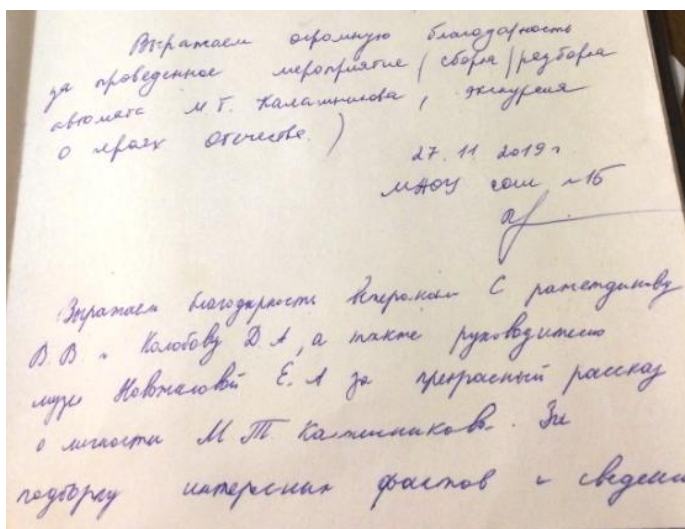 Выражаем огромную благодарность
за проведенное мероприятие (сборка/разборка
автомата М.Т. Калашникова, экскурсия
о героях отечества.)
27.11 2019 г
МАОУ сош №15
Выражаем благодарность ветеранам
В.В. и Колобову Д.А, а также руководителю
музея Е.А за прекрасный рассказ
о личности М Т Калашникова. За
подборку интересных фактов и сведений